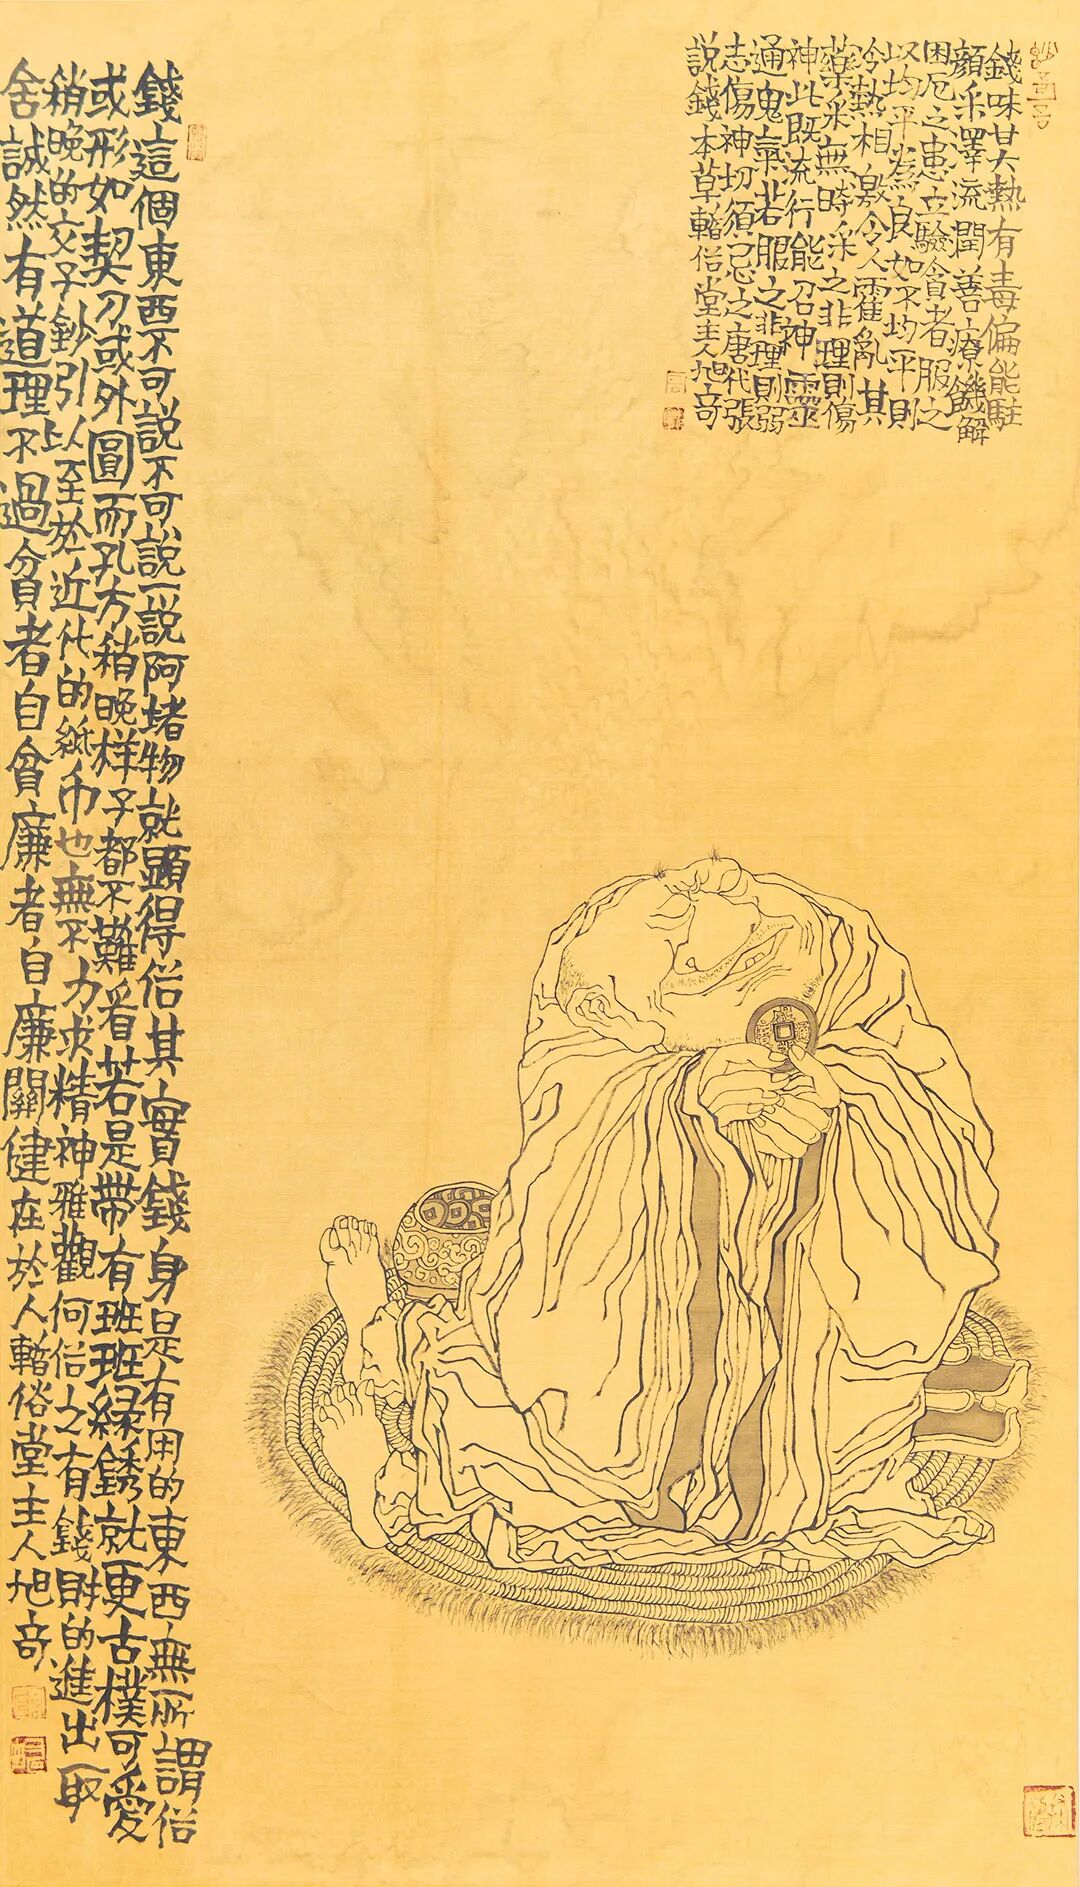 錢味甘大熱有毒偏能駐
顏采澤流潤善療饑解
困厄之患立驗貪者服之
以均平為良如不均平則
冷熱相激令人霍亂其
藥采無時采之非理則傷
神此既流行能召神靈
通鬼氣若服之非理則弱
志傷神切須忌之唐代張
説錢本草俗堂主人旭奇
錢這個東西不可説不可説一説阿堵物就顯得俗其實錢身是有用的東西無所謂俗
或形如契刀或外圓而孔方稍晚样子都不難看若是帶有班班緑銹就更古樸可愛
稍晚的交子鈔引以至於近代的紙币也無不力求精神雅觀何俗之有錢財的進出取
舍誠然有道理不過貪者自貪廉者自廉關健在於人俗堂主人旭奇